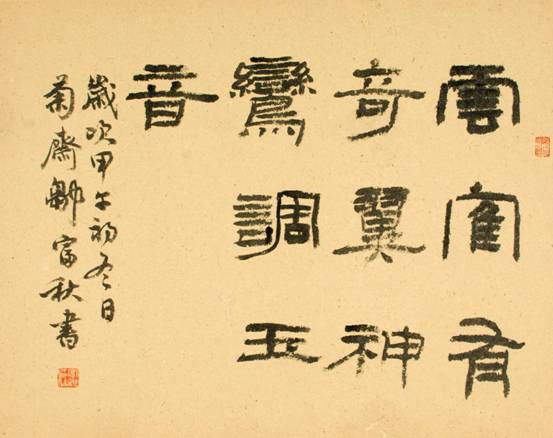 雲隺有
奇翼神
鸞調玉
音
歲次甲午初冬日
菊齋 富秋書